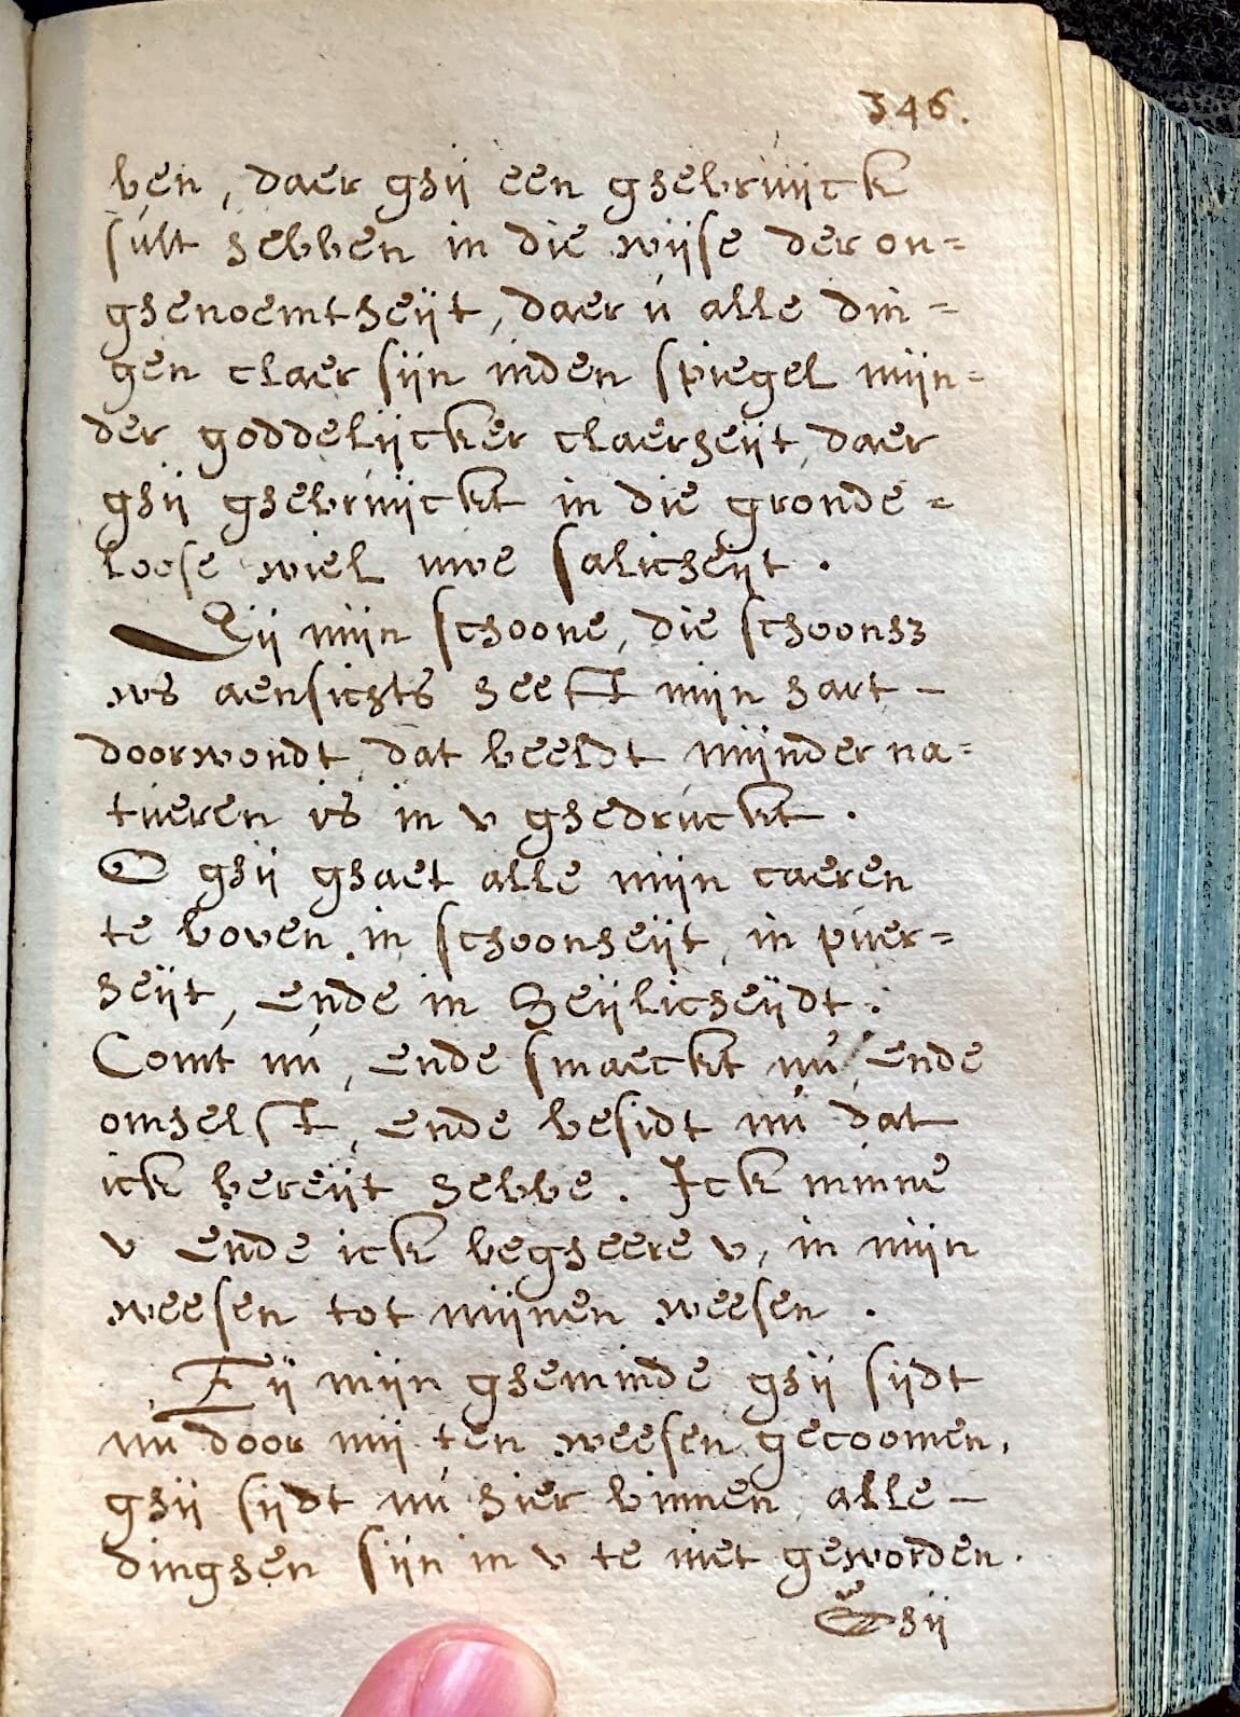 346.
ben, daer ghij een ghebruijck
sult hebben in die wijse der on=
ghenoemtheijt, daer u alle din=
gen claer sijn inden spiegel mijn=
der goddelijcker claerheijt, daer
ghij ghebruijckt in die gronde=
loose wiel uwe salicheijt.
Eij mijn schoone, die schoonh3
ws aensichts heeft mijn hart -
doorwondt, dat beeldt mijnder na=
tueren is in v ghedruckt.
O ghij ghaet alle mijn caeren
te boven, in schoonheijt, in puer=
heijt, ende in heijlicheijdt.
Comt nu, ende smaeckt nu, ende
omhelst, ende besidt nu dat
ick bereijt hebbe. Ick minne
v ende ick begheere v, in mijn
weesen tot mijnen weesen.
Eij mijn gheminde ghij sijdt
nu door mij ten weesen gecoomen,
ghij sijdt nu hier binnen, alle -
dinghen sijn in v te niet geworden.
Ghij